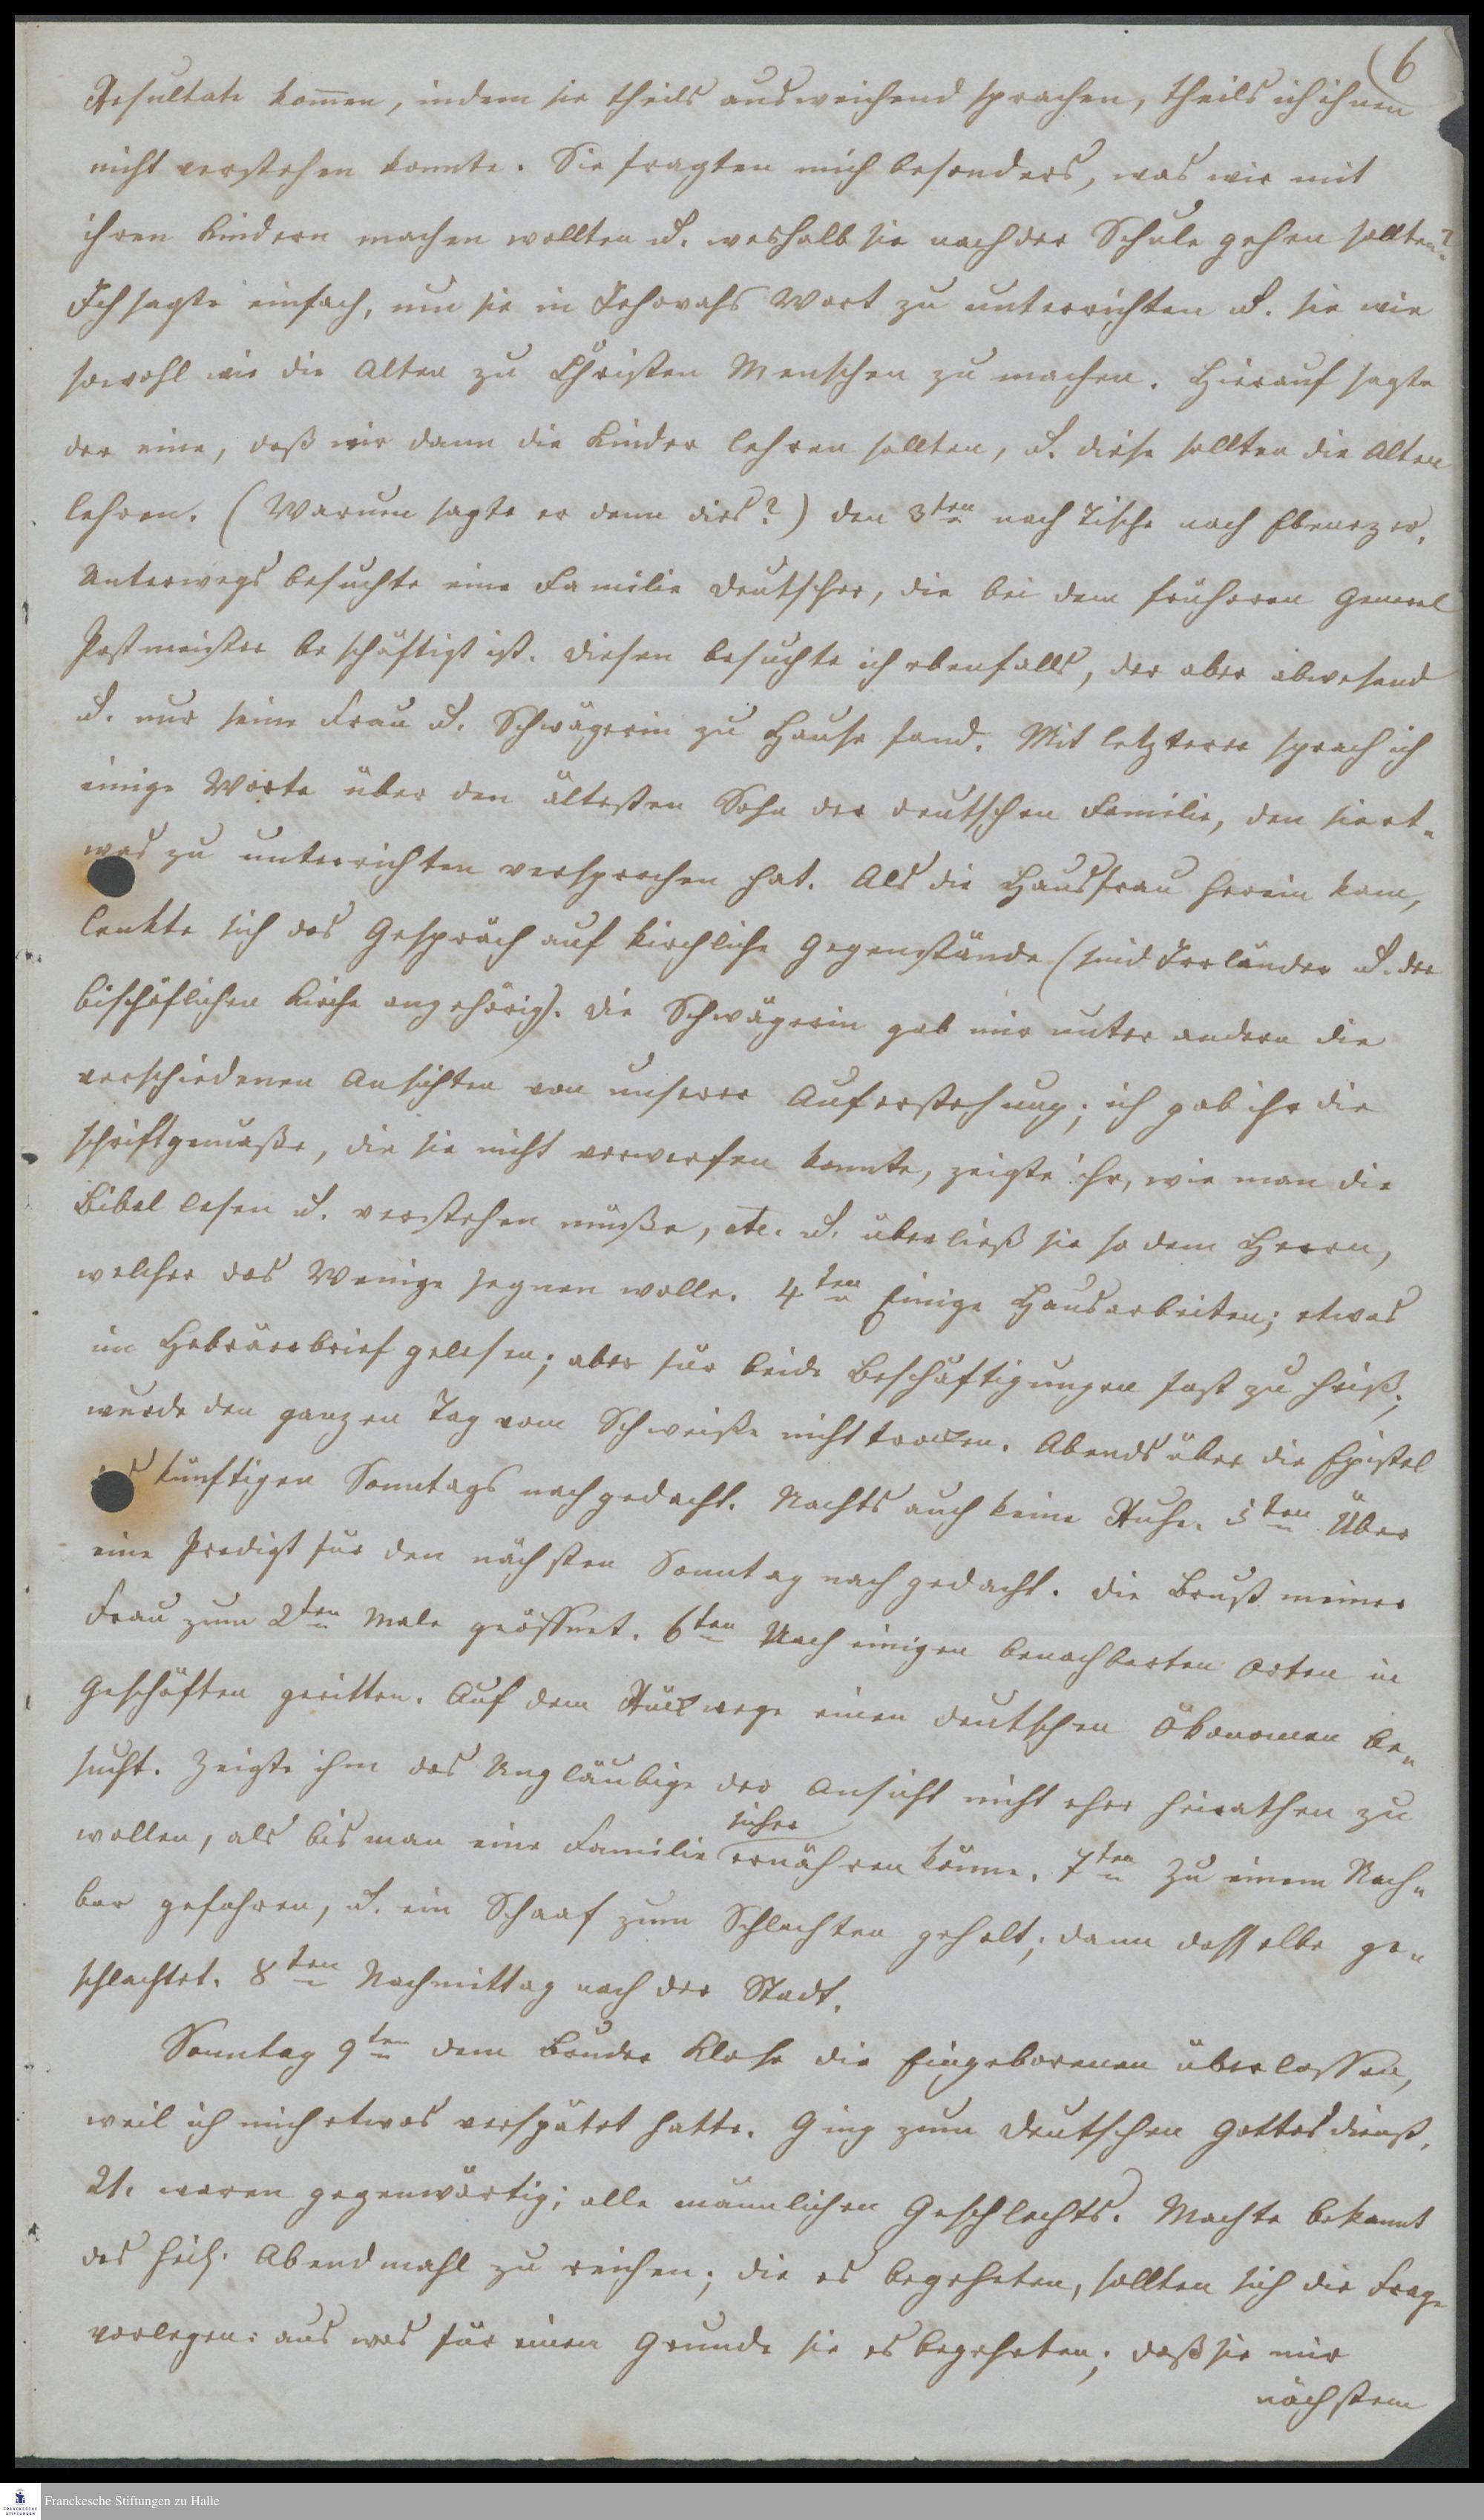 (6
Resultate kom̄en, indem sie theils ausweichend sprachen, theils ich ihnen
nicht verstehen konnte. Sie fragten mich besonders, was wir mit
ihren Kindern machen wollten u. weshalb sie nach der Schule gehen sollten?
Ich sagte einfach, um sie in Jehovahs Wort zu unterrichten u. sie wie
sowohl wie die Alten zu Christen Menschen zu machen. Hierauf sagte
der eine, daß wir dann die Kinder lehren sollten, u. diese sollten die Alten
lehren. (Warum sagte er denn dies?) Den 3ten nach Tische nach Ebenezer.
Unterwegs besuchte eine Familie Deutscher, die bei dem früheren General
Postmeister beschäftigt ist. Diesen besuchte ich ebenfalls, der aber abwesend
u. nur seine Frau u. Schwägerin zu Hause fand. Mit letzterer sprach ich
einige Worte über den ältesten Sohn der deutschen Familie, den sie et-
was zu unterrichten versprochen hat. Als die Hausfrau herein kam,
lenkte sich das Gespräch auf kirchliche Gegenstände (sind Irrländer u. der
bischöflichen Kirche angehörig). Die Schwägerin gab mir unter andern die
verschiedenen Ansichten von unserer Auferstehung; ich gab ihr die
schriftgemäße, die sie nicht verwerfen konnte, zeigte ihr, wie man die
Bibel lesen u. verstehen müße, etc. u. überließ sie so dem Herrn,
welcher das Wenige segnen wolle. 4ten Einige Hausarbeiten; etwas
im Hebräerbrief gelesen; aber für beide Beschäftigungen fast zu heiß;
wurde den ganzen Tag vom Schweiße nicht trocken. Abends über die Epistel
künftigen Sonntags nachgedacht. Nachts auch keine Ruhe. 5ten Über
eine Predigt für den nächsten Sonntag nachgedacht. Die Brust meiner
Frau zum 2ten Male geöffnet. 6ten Nach einigen benachbarten Orten in
Geschäften geritten. Auf dem Rückwege einen deutschen Ökonomen be-
sucht. Zeigte ihm das Ungläubige der Ansicht nicht eher heirathen zu
wollen, als bis man eine Familie sicher ernähren könne. 7ten Zu einem Nach-
bar gefahren, u. ein Schaaf zum Schlachten geholt; dann dasselbe ge-
schlachtet. 8ten Nachmittag nach der Stadt.
Sonntag 9ten dem Bruder Klose die Eingeborenen überlassen,
weil ich mich etwas verspätet hatte. Ging zum deutschen Gottesdienst,
21. waren gegenwärtig; alle männlichen Geschlechts. Machte bekannt
das heil. Abendmahl zu reichen; die es begehrten, sollten sich die Frage
vorlegen: aus was für einen Grunde sie es begehrten; daß sie mir
nächstem
Franckesche Stiftungen zu Halle